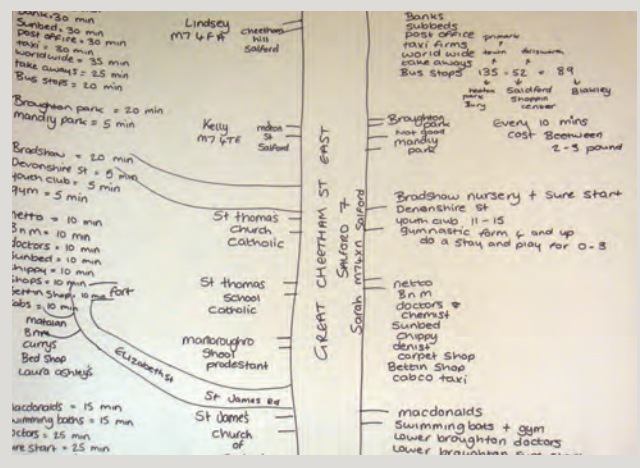 Bank = 30 min
Sunbed = 30 min
post office = 30 min
taxi = 30 min
worldwide = 35 min
take aways = 25 min
Bus stops = 20 min
Broughton park = 20 min
mandly park = 5 min
Bradshaw = 20 min
Devonshire St = 5 min
youth club = 5 min
gym = 5 min
netto = 10 min
Bnm = 10 min
doctors = 10 min
sunbed = 10 min
chippy = 10 min
shops = 10 min
Bettin Shop = 10 min
cabs = 10 min
fort
matalan
Bnm
currys
Bed Shop
Laura ashleys
macdonalds = 15 min
swimming baths = 15 min
doctors = 25 min
sure start = 25 min
Lindsey
M7 4FA
cheetham
hill
Salford
Kelly
M7 4TF
St
Salford
St thomas
Church
Catholic
St thomas
School
Catholic
marlboroughro
Shool
prodestant
Elizabeth St
St James Rd
St James
church
of
GREAT CHEETHAM ST EAST
SALFORD 7
Sarah M74XN Salford
Banks
subbeds
post office
taxi firms
world wide
take aways
Bus stops 135 - 52 - 89
town
heaton
park
Bury
Saldford
Shoppin
center
Blakley
Broughton
park
Not good
mandly
park
Every 10 mins
cost Beetween
2-3 pound
Bradshaw nursery + Sure Start
Denonshire St
youth club 11-15
gymnastic form 4 and up
do a stay and play for 0-3
netto
Bnm
doctors
chemist
Sunbed
Chippy
denist
carpet Shop
Bettin Shop
cabco taxi
macdonalds
Swimming bats + gym
Lower broughton doctors
Lower broughton sure start